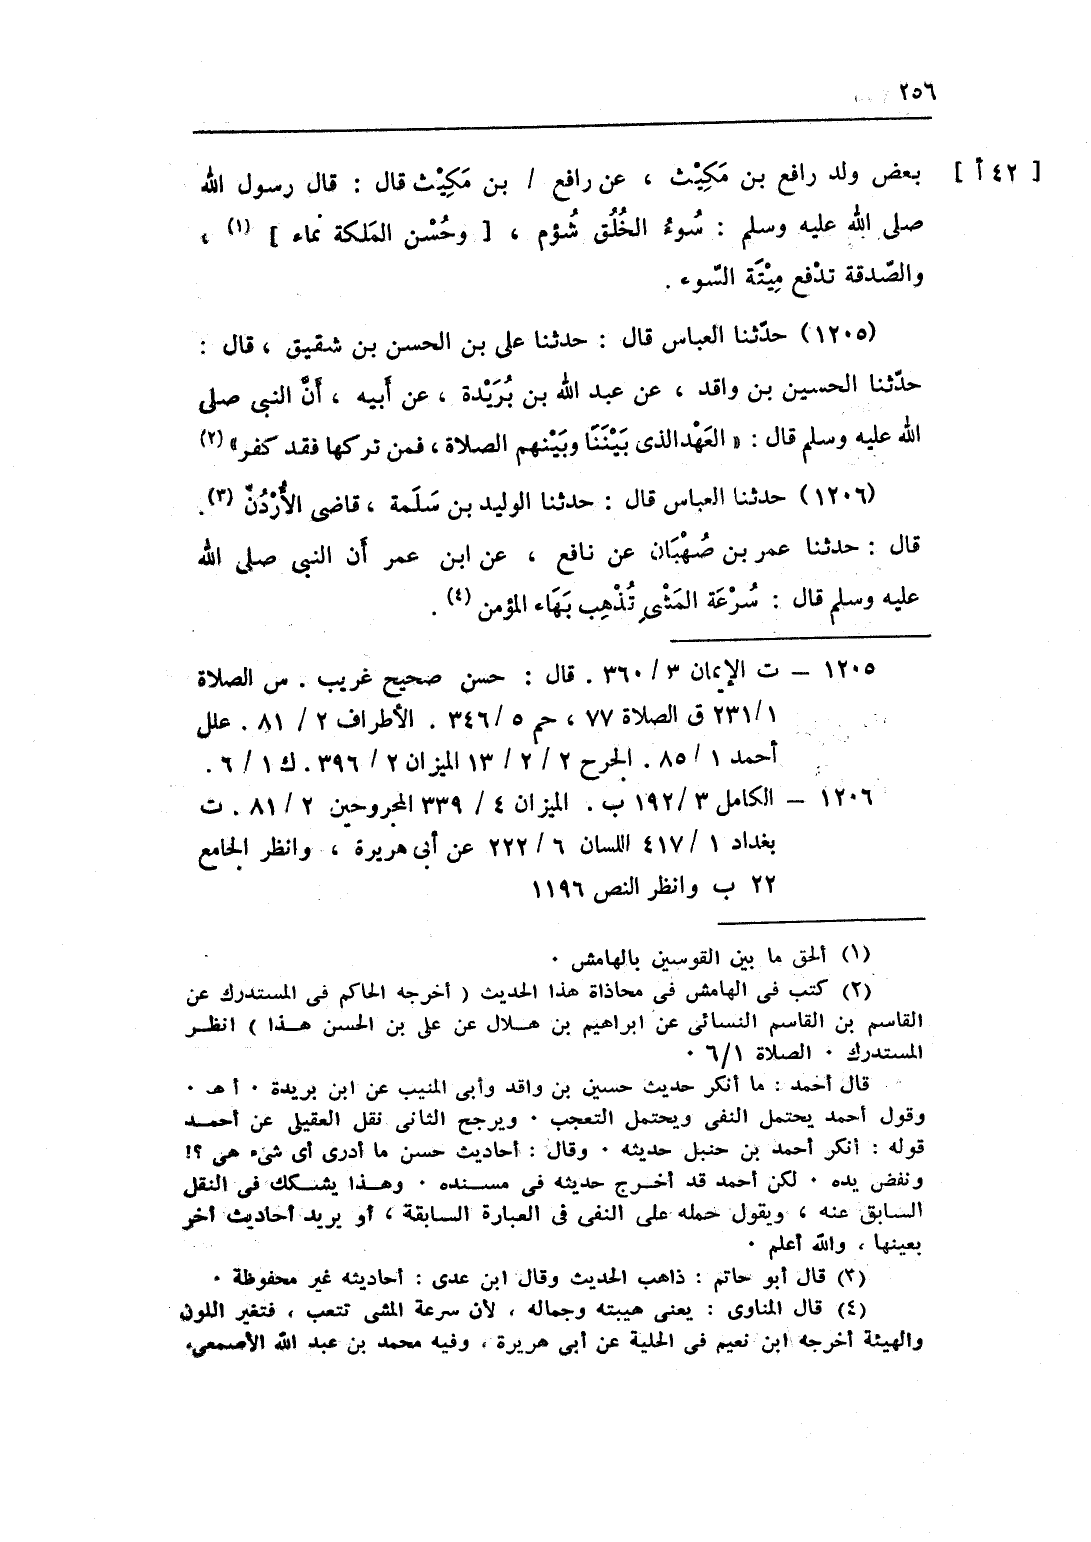 ٢٥٦
[ ٤٢ أ ] بعض ولد رافع بن مَكِيْث ، عن رافع / بن مَكِيْث قال : قال رسول الله
صلى الله عليه وسلم : سُوءُ الخُلُق شُؤم ، [ وحُسْن المَلكة نماء ] (١) ،
والصّدقة تدْفع مِيْتَة السّوء .
(١٢٠٥) حدّثنا العباس قال : حدثنا على بن الحسن بن شقيق ، قال :
حدّثنا الحسين بن واقد ، عن عبد الله بن بُرَيْدة ، عن أَبيه ، أَنَّ النبي صلى
الله عليه وسلم قال : « العَهْد الذى بَيْنَنَا وبَيْنهم الصلاة ، فمن تركها فقد كفر » (٢)
(١٢٠٦) حدثنا العباس قال : حدثنا الوليد بن سَلَمة ، قاضى الأُرْدُنّ (٣).
قال : حدثنا عمر بن صُهْبَان عن نافع ، عن ابن عمر أَن النبي صلى الله
عليه وسلم قال : سُرْعَة المَشْىِ تُذْهِب بَهَاء المؤمن (٤) .
١٢٠٥ – ت الإيمان ٣ / ٣٦٠ . قال : حسن صحيح غريب . س الصلاة
١ / ٢٣١ ق الصلاة ٧٧ ، حم ٥ / ٣٤٦ . الأطراف ٢ / ٨١ . علل
أحمد ١ / ٨٥ . الجرح ٢ / ٢ / ١٣ الميزان ٢ / ٣٩٦ . ك ١ / ٦ .
١٢٠٦ – الكامل ٣ / ١٩٢ ب . الميزان ٤ / ٣٣٩ المجروحين ٢ / ٨١ . ت
بغداد ١ / ٤١٧ اللسان ٦ / ٢٢٢ عن أبى هريرة ، وانظر الجامع
٢٢ ب وانظر النص ١١٩٦
(١) ألحق ما بين القوسين بالهامش .
(٢) كتب فى الهامش فى محاذاة هذا الحديث ( أخرجه الحاكم فى المستدرك عن
القاسم بن القاسم النسائى عن ابراهيم بن هـلال عن على بن الحسن هـذا ) انظـر
المستدرك . الصلاة ١/٦ .
قال أحمد : ما أنكر حديث حسين بن واقد وأبى المنيب عن ابن بريدة . أ هـ .
وقول أحمد يحتمل النفى ويحتمل التعجب . ويرجح الثانى نقل العقيلى عن أحمـد
قوله : أنكر أحمد بن حنبل حديثه . وقال : أحاديث حسن ما أدرى أى شىء هى ؟!
ونفض يده . لكن أحمد قد أخـرج حديثه فى مسـنده . وهـذا يشـكك فى النقل
السابق عنه ، ويقول حمله على النفى فى العبارة السابقة ، أو يريد أحاديث أخر
بعينها ، والله أعلم .
(٣) قال أبو حاتم : ذاهب الحديث وقال ابن عدى : أحاديثه غير محفوظة .
(٤) قال المناوى : يعنى هيبته وجماله ، لأن سرعة المشى تتعب ، فتغير اللون
والهيئة أخرجه ابن نعيم فى الحلية عن أبى هريرة ، وفيه محمد بن عبد الله الأصمعى،